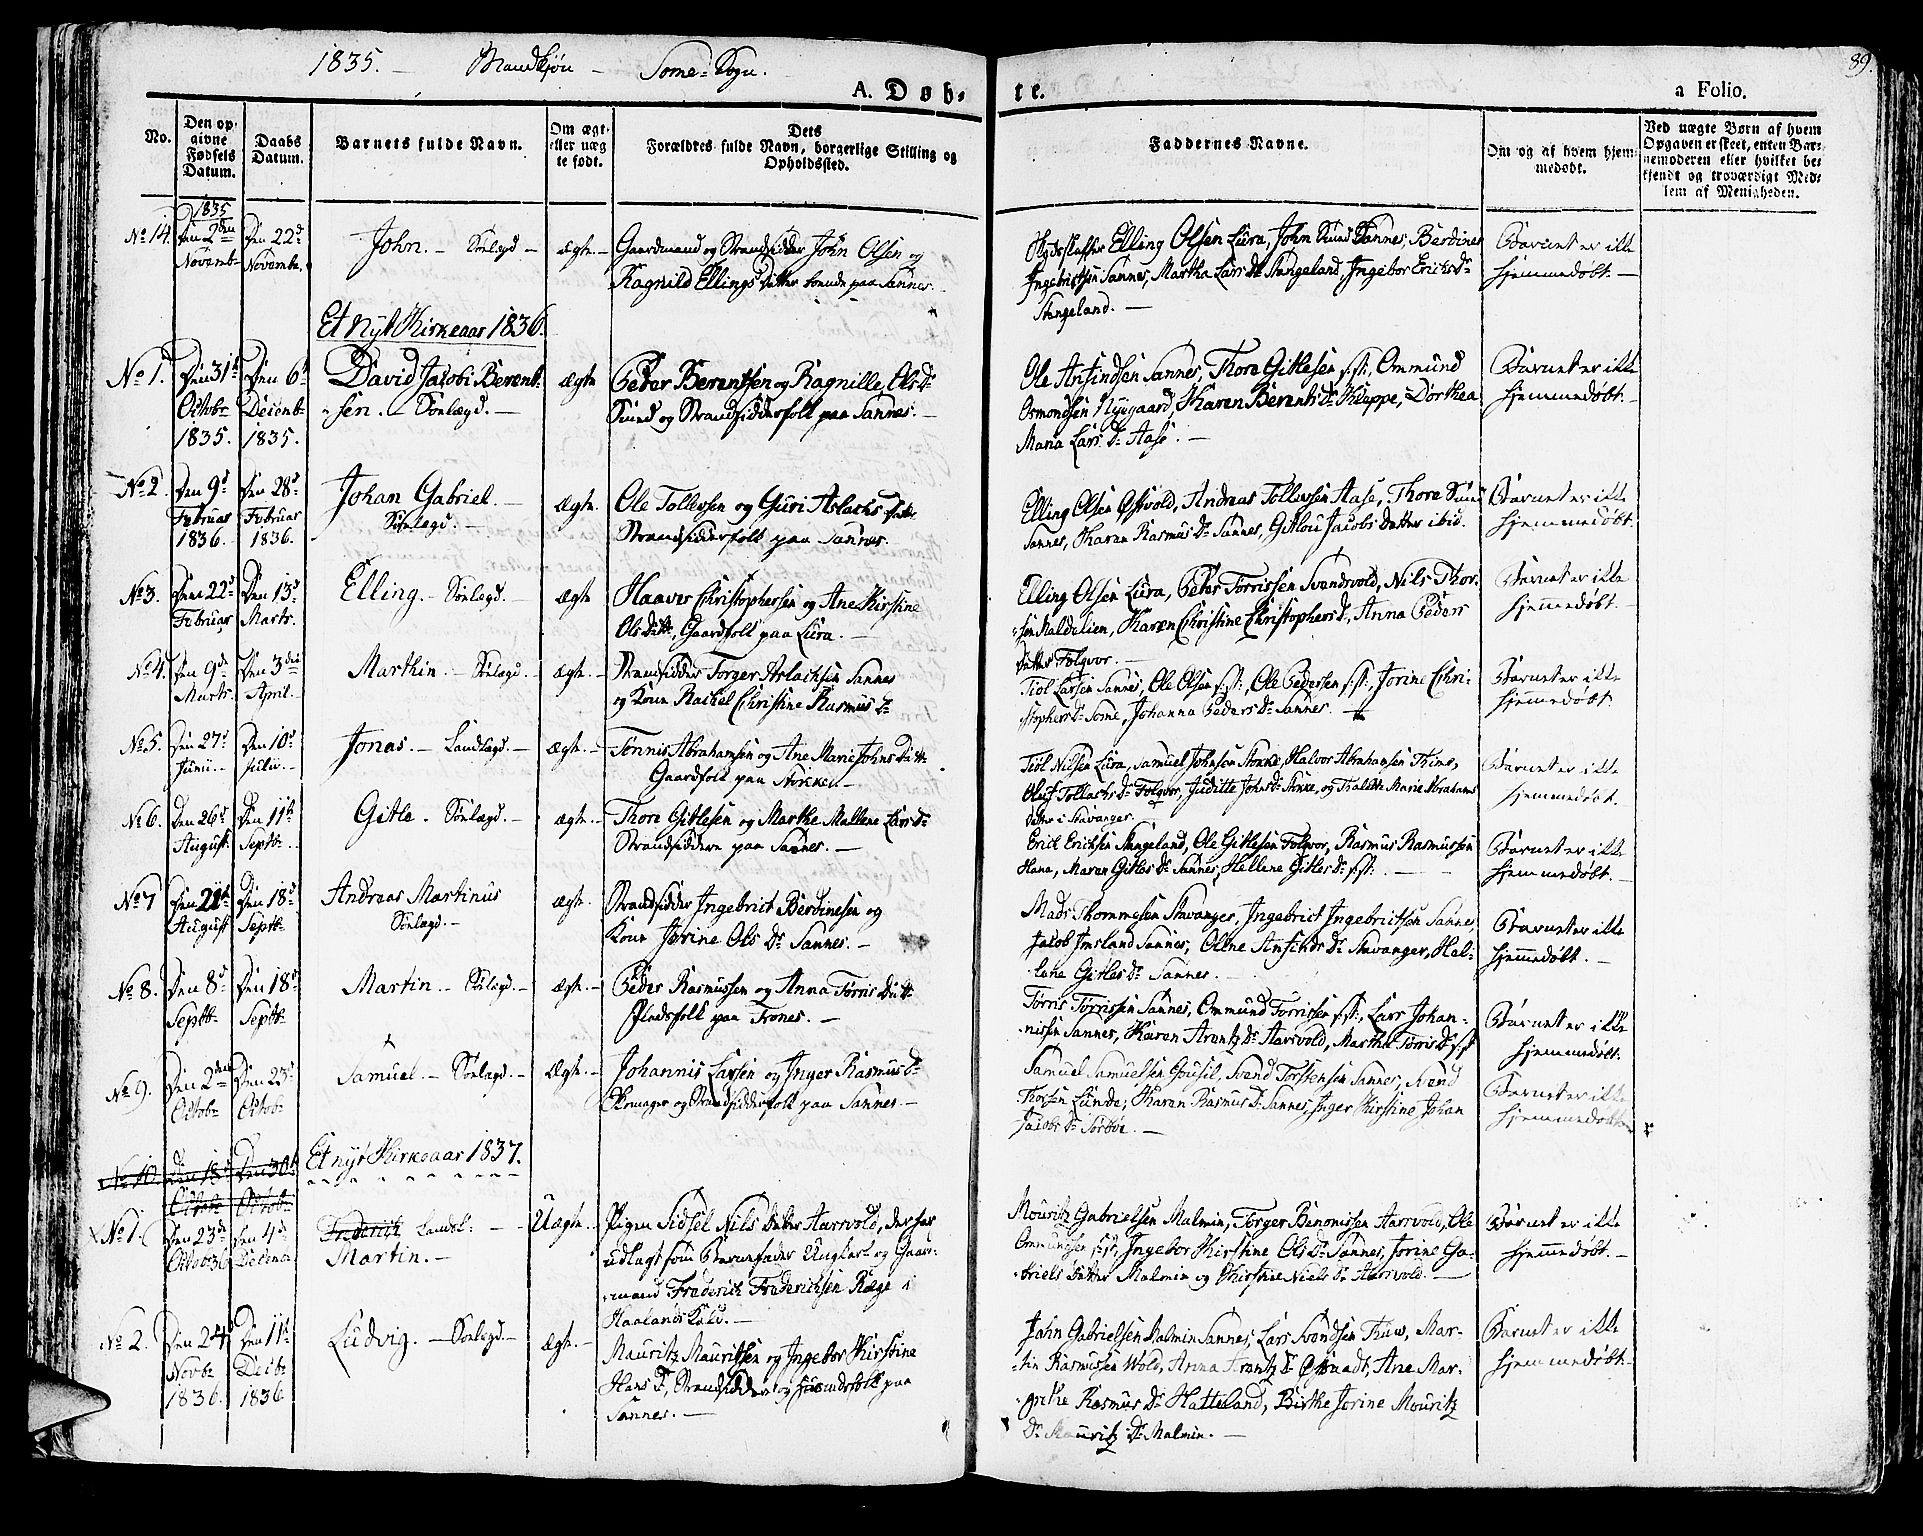 1835. — Mandkjøn — Some-Sogn.
89.
A. Døb-
te.
a Folio.
No.
Den op-
givne
Fødsels
Datum.
Daabs
Datum.
Barnets fulde Navn.
Om ægt-
eller uæg
te født.
Dets
Forældres fulde Navn, borgerlige Stilling og
Opholdssted.
Faddernes Navne.
Om og af hvem hjem-
medøbt.
Ved uægte Børn af hvem
Opgaven er skeet, enten Bar-
nemoderen eller hvilket be-
kjendt og troværdigt Med-
lem af Menigheden.
1835
No 14. Den 2den Novemb. Den 22d Novemb. John. — Sönlagd — ægte. — Gaardmand og Strandsidder John Olsen og
Ragnild Ellingsdatter boende paa Sannes.
Elling Olsen Lura, John Sannes, Berdines
Ingebrethsen Sannes, Martha Lars Dr Stangeland, Ingebor Erichs Dr
Stangeland. —
Barnet er ikke
hjemmedøbt. —
Et nyt Kirkeaar 1836.
No 1. Den 31te Octobr 1835. Den 6te Decemb. 1835. David Jacobi Berent-
sen. — Sönlagd. — ægte Peder Berentsen og Ragnille Ols Dr
Smed og Strandsidderfolk paa Sannes. —
Ole Ansindsen Sannes, Thore Gitlesen s:st:, Ommund
Osmondsen Nyegaard, Karen Berents Dr Kleppe, Dorthea
Maria Lars Dr Aase. —
Barnet er ikke
hjemmedøbt. —
No 2. Den 9d Februar 1836. Den 28d Februar 1836. Johan Gabriel. —
Sönlagd. — Ægte. Ole Tollessen og Guri Aslachs Datter
Strandsidderfolk paa Sannes.
Elling Olsen Østvold, Andreas Tollessen Aase, Thore
Sannes, Karen Rasmus Dr Sannes, Gitlou Jacobs Datter ibid.
Barnet er ikke
hjemmedøbt.
No 3. Den 22d Februar Den 13d Marts. Elling. — Sönlagd. — ægte Haaver Christophersen og Ane Kirstine
Ols Datt., Gaardfolk paa Lura. —
Elling Olsen Lura, Peder Torrissen Svendsvold, Nils Thor-
sen Maldalien, Karen Christine Christophers Dr, Anna Peders
Datter Folqvor. —
Barnet er ikke
hjemmedøbt. —
No 4. Den 9de Marts. Den 3die April. — Marthin. — Sönlagd. — ægte. — Strandsidder Torger Aslachsen Sannes
og Kone Rachel Christine Rasmus Dr
Tiol Larsen Sannes, Ole Olsen s:st:, Ole Pedersen s:st:, Jorine Chri-
stophers Dr Some, Johanna Peders Dr Sannes. —
Barnet er ikke
hjemmedøbt.
No 5. Den 27d Junii. — Den 10d Julii. — Jonas. — Landlagd. — ægte. — Tønnis Abrahamsen og Ane Marie Johns Datt.
Gaardfolk paa —
Tiol Nilsen Lura, Samuel Johnsen Halvor Abrahamsen Thime,
Tollachs Dr Folqvor, Juditte Johns Dr og Marie Abrahams
Datter i Stavanger.
Barnet er ikke
hjemmedøbt.
No 6. Den 26d August. Den 11te Septbr. Gitle. — Sönlagd. — ægte. — Thore Gitlesen og Marthe Mallene Lars Dr
Strandsiddere paa Sannes. —
Erick Ericksen Stangeland, Ole Gitlesen Folqvor, Rasmus Rasmussen
Hana, Maren Gitles Dr Sannes, Hellene Gitles Dr s:st: —
Barnet er ikke
hjemmedøbt. —
No 7 Den 21te August Den 18d Septbr. Andreas Martinus
Sönlagd. — ægte. Strandsidder Ingebrict Berdinesen og
Kone Jorine Ols Dr Sannes. —
Mads Thommesen Stavanger, Ingebrict Ingebrictsen Sannes,
Jacob Imsland Sannes, Olene Ansends Dr Stavanger, Hel-
lene Gitles Dr Sannes. —
Barnet er ikke
hjemmedøbt. —
No 8. Den 8d Septbr. Den 18d Septbr. Martin. — Sönlagd. — ægte. — Peder Rasmussen og Anna Torris Datt.
Pladsfolk paa Trones. —
Torris Torrissen Sannes, Ommund Torrissen s:st:, Lars Johan-
nissen Sannes, Karen Arentz Dr Aarsvold, Marthe Torris Dr s:st
Barnet er ikke
hjemmedøbt.
No 9. Den 2den Octobr. Den 23d Octobr. Samuel. — Sönlagd. — Ægte. — Johannis Larsen og Inger Rasmus Dr
Skomager og Strandsidderfolk paa Sannes. —
Samuel Samuelsen Gousil, Svend Torstensen Sannes, Svend
Thorsen Lunde, Karen Rasmus Dr Sannes, Inger Kirstine Johan
Jacobs Dr Sørbøe. —
Barnet er ikke
hjemmedøbt
No 10. Den 18d Octobr Den 30te Octobr. Et nyt Kirkeaar 1837.
No 1. Den 23de Octob 36 Den 4de Decemb. Frederick Landl: —
Martin. — Uægte. Pigen Sidsel Nils Datter Aarsvold, der har
udlagt som Barnefader Ungkarl og Gaar-
mand Frederick Fredericksen Ræge i
Haalands Kald. —
Mouritz Gabrielsen Malmin, Torger Benonissen Aarsvold, Ole
Ommundsen s:st, Ingebor Kirstine Ols Dr Sannes, Jorine Ga-
briels Datter Malmin og Kirstine Niels Dr Aarsvold. —
Barnet er ikke
hjemmedøbt. —
No 2. Den 24d Novbr 1836. Den 11te Decbr 1836 Ludvig. — Sönlagd. — ægte. — Mauritz Mauritsen og Ingebor Kirstine
Hans Dr, Strandsidder og folk paa
Sannes. —
John Gabrielsen Malmin Sannes, Lars Svendsen Mar-
tin Rasmussen Wold, Anna Arentz Dr Ane Mar-
grethe Rasmus Dr Hatteland, Birthe Jorine Mouritz
Dr Mouritz Dr Malmin. —
Barnet er ikke
hjemmedøbt. —